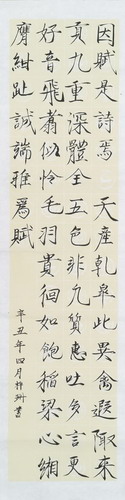 因賦是詩焉 天產乹皋此異禽遐陬來
貢九重深體全五色非凡質惠吐多言更
好音飛翥似憐毛羽貴徊如飽稻粱心緗
膺紺趾誠端雅爲賦
辛丑年四月 書